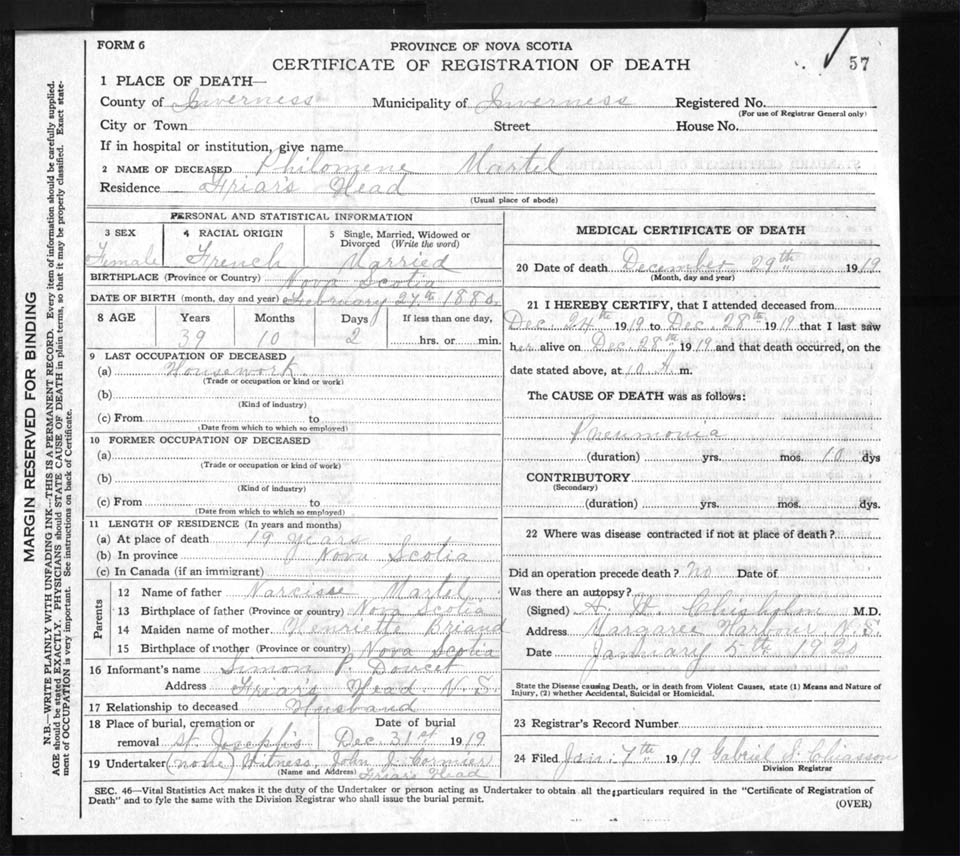 FORM 6
PROVINCE OF NOVA SCOTIA
57
CERTIFICATE OF REGISTRATION OF DEATH
1 PLACE OF DEATH—
County of Inverness Municipality of Inverness Registered No.
(For use of Registrar General only)
City or Town Street House No.
If in hospital or institution, give name
2 NAME OF DECEASED Philomene Martel
Residence Friar's Head
(Usual place of abode)
PERSONAL AND STATISTICAL INFORMATION
3 SEX 4 RACIAL ORIGIN 5 Single, Married, Widowed or Divorced (Write the word)
Female French Married
BIRTHPLACE (Province or Country) Nova Scotia
DATE OF BIRTH (month, day and year) February 27th 1880.
8 AGE Years Months Days If less than one day,
39 10 2 hrs. or min.
9 LAST OCCUPATION OF DECEASED
(a) Housework.
(Trade or occupation or kind or work)
(b)
(Kind of industry)
(c) From to
(Date from which to which so employed)
10 FORMER OCCUPATION OF DECEASED
(a)
(Trade or occupation or kind of work)
(b)
(Kind of industry)
(c) From to
(Date from which to which so employed)
11 LENGTH OF RESIDENCE (In years and months)
(a) At place of death 19 years
(b) In province Nova Scotia
(c) In Canada (if an immigrant)
Parents
12 Name of father Narcisse Martel
13 Birthplace of father (Province or country) Nova Scotia
14 Maiden name of mother Henriette Briand
15 Birthplace of mother (Province or country) Nova Scotia
16 Informant's name Simon P. Doucet
Address Friar's Head N.S.
17 Relationship to deceased Husband
18 Place of burial, cremation or Date of burial
removal St. Joseph's Dec. 31st 1919
19 Undertaker (none) Witness, John J. Cormier
(Name and Address) Friar's Head
MEDICAL CERTIFICATE OF DEATH
20 Date of death December 29th 1919.
(Month, day and year)
21 I HEREBY CERTIFY, that I attended deceased from
Dec. 24th 1919 to Dec. 28th 1919 that I last saw
her alive on Dec. 28th 1919 and that death occurred, on the
date stated above, at 10 A. m.
The CAUSE OF DEATH was as follows:
Pneumonia
(duration) yrs. mos. 10 dys
CONTRIBUTORY
(Secondary)
(duration) yrs. mos. dys.
22 Where was disease contracted if not at place of death?
Did an operation precede death? no Date of
Was there an autopsy?
(Signed) A. H. Chisholm M.D.
Address Margaree Harbour N.S.
Date January 5th 1920
State the Disease causing Death, or in death from Violent Causes, state (1) Means and Nature of
Injury, (2) whether Accidental, Suicidal or Homicidal.
23 Registrar's Record Number
24 Filed Jan. 7th 1919 Gabriel S. Chiasson
Division Registrar
SEC. 46—Vital Statistics Act makes it the duty of the Undertaker or person acting as Undertaker to obtain all the particulars required in the "Certificate of Registration of
Death" and to fyle the same with the Division Registrar who shall issue the burial permit.
(OVER)
MARGIN RESERVED FOR BINDING
N.B.—WRITE PLAINLY WITH UNFADING INK—THIS IS A PERMANENT RECORD. Every item of information should be carefully supplied.
AGE should be stated EXACTLY. PHYSICIANS should STATE CAUSE OF DEATH in plain terms, so that it may be properly classified. Exact state-
ment of OCCUPATION is very important. See instructions on back of Certificate.